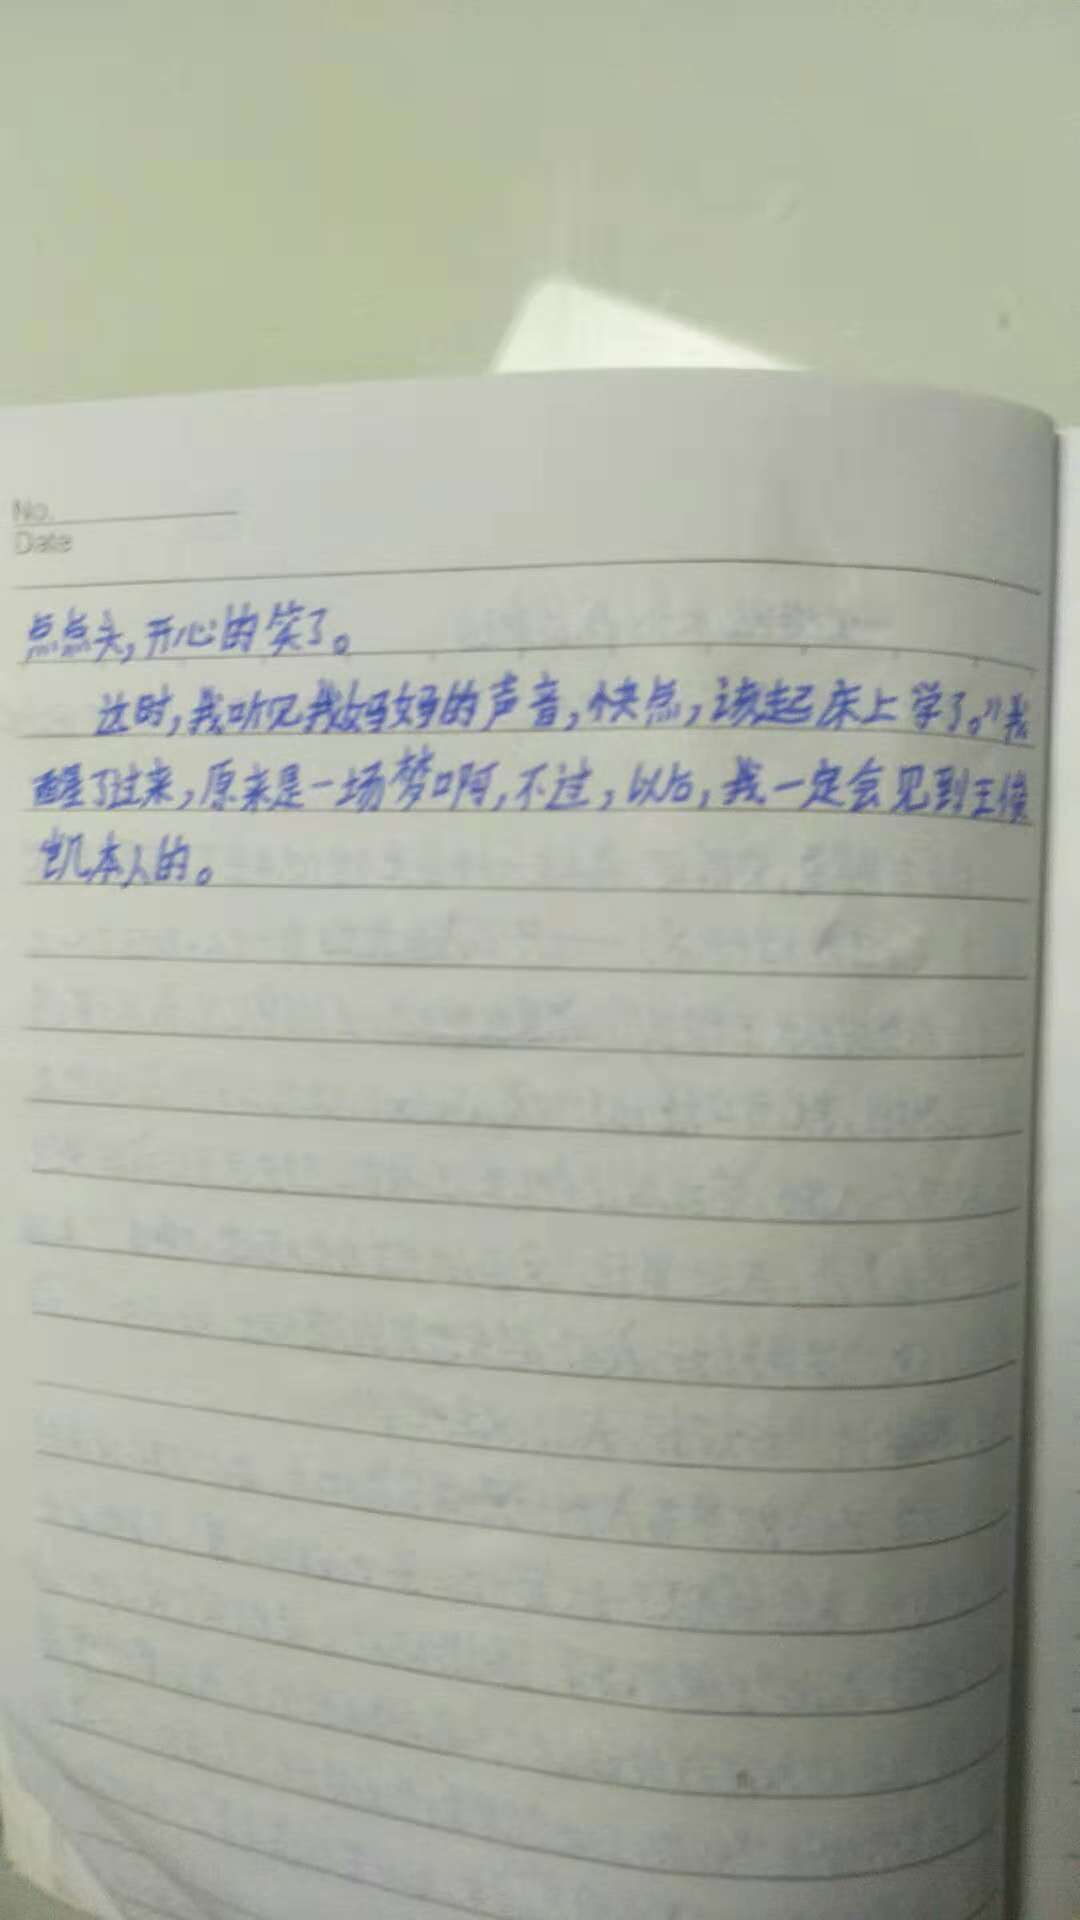 No.
Date
点点头,开心的笑了。
这时,我听见我妈妈的声音,快点,该起床上学了。”我
醒了过来,原来是一场梦啊,不过,以后,我一定会见到王俊
凯本人的。